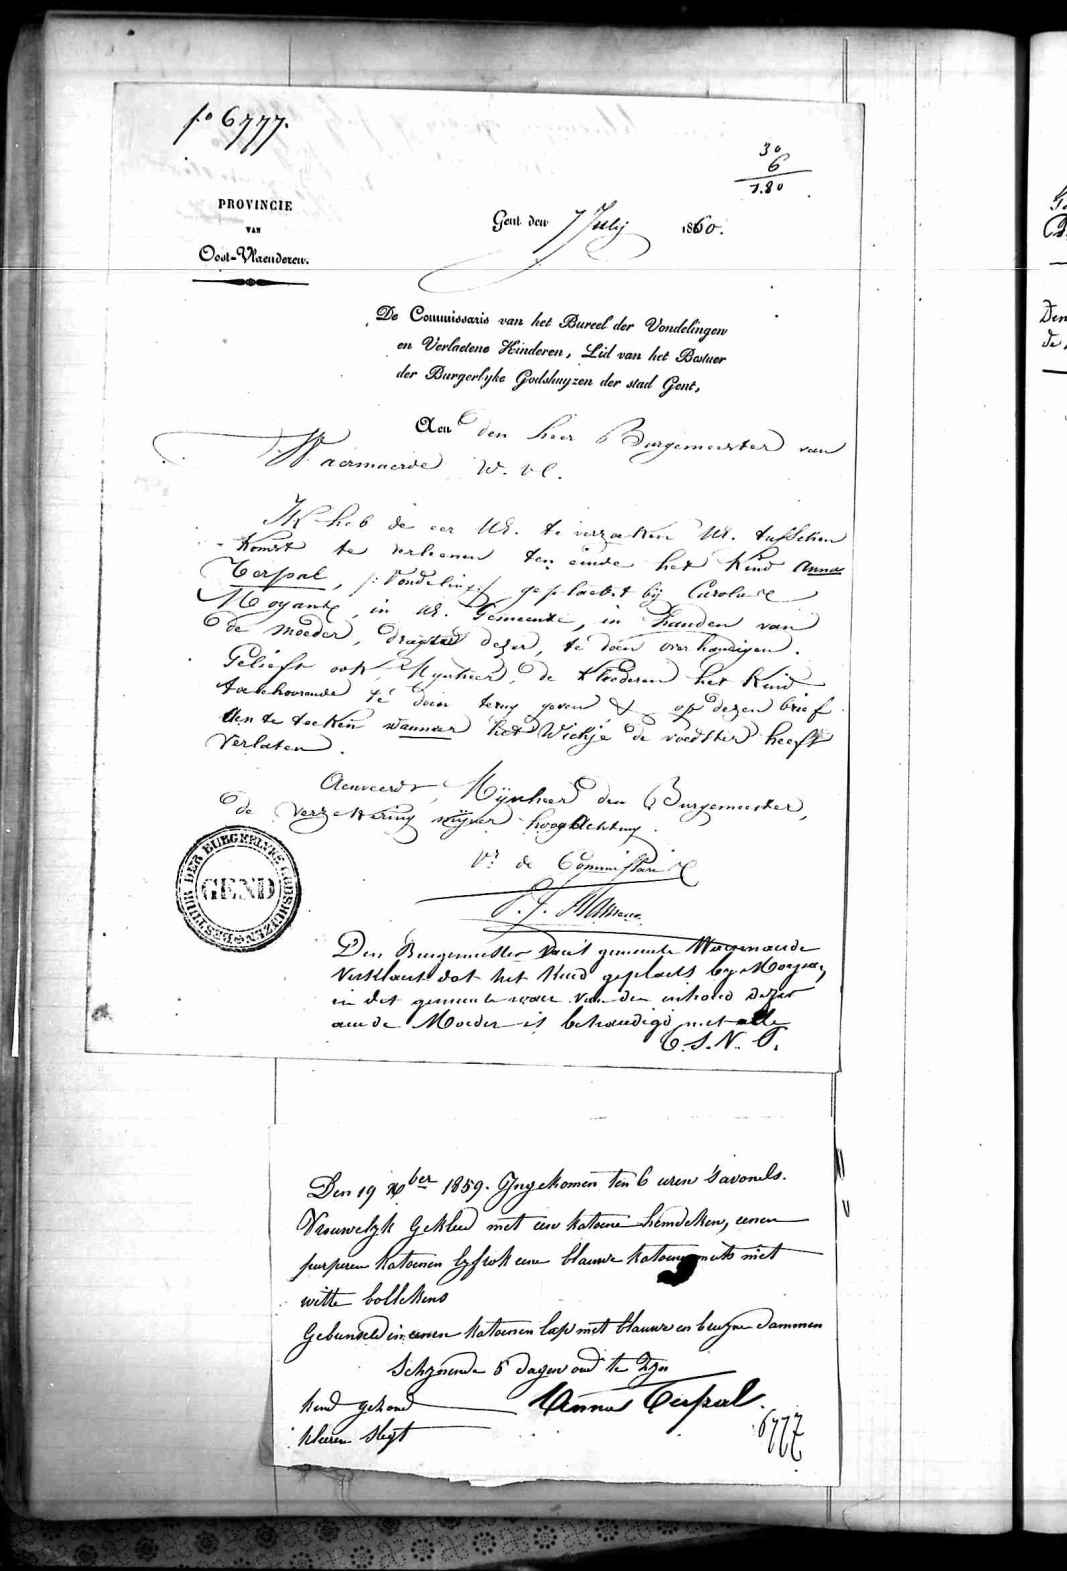 fo 6777.
30
6
1.80
PROVINCIE
VAN
Oost-Vlaenderen.
Gent den 7 July 1860.
De Commissaris van het Bureel der Vondelingen
en Verlaetene Kinderen, Lid van het Bestuer
der Burgerlyke Godshuyzen der stad Gent,
Aen den heer Burgemeester van
Waermaerde W. Vl.
Ik heb de eer UE. te verzoeken UE. tusschen
komst te verleenen ten einde het kind Anna
Terpal, /: Vondeling :/ geplaetst bij Carolus
Moyant, in UE. Gemeente, in handen van
de moeder, dezer, te doen overhandigen.
Gelieft ook, Mynheer, de kleederen het kind
toebehoorende te doen terug geven & op dezen brief
aen te teeken wanneer het Wichje de voedster heeft
verlaten.
Aenveerdt, Mynheer den Burgemeester,
de verzekering mijner hoogachting.
Vr de Commissaris
BESTUUR DER BURGERLYKE GODSHUIZEN
GEND
Den Burgemeester van't gemeente Waermaerde
Verklaert dat het kind geplaets by Moyan,
in dit gemeente van den inhoud dezer
aen de Moeder is behandigd met alle
Den 19 Xber 1859. Ingekomen ten 6 uren 's avonds.
Vrouwelyk gekleed met een katoene hemdeken, eenen
purperen katoenen lyfrok eene blauwe katoene muts met
witte bollekens
Gebundeld in eenen katoenen lap met blauwe en bruyne dammen
Schynende 5 dagen oud te zyn
kind gezond Anna Terpal.
kleeren slegt 6777